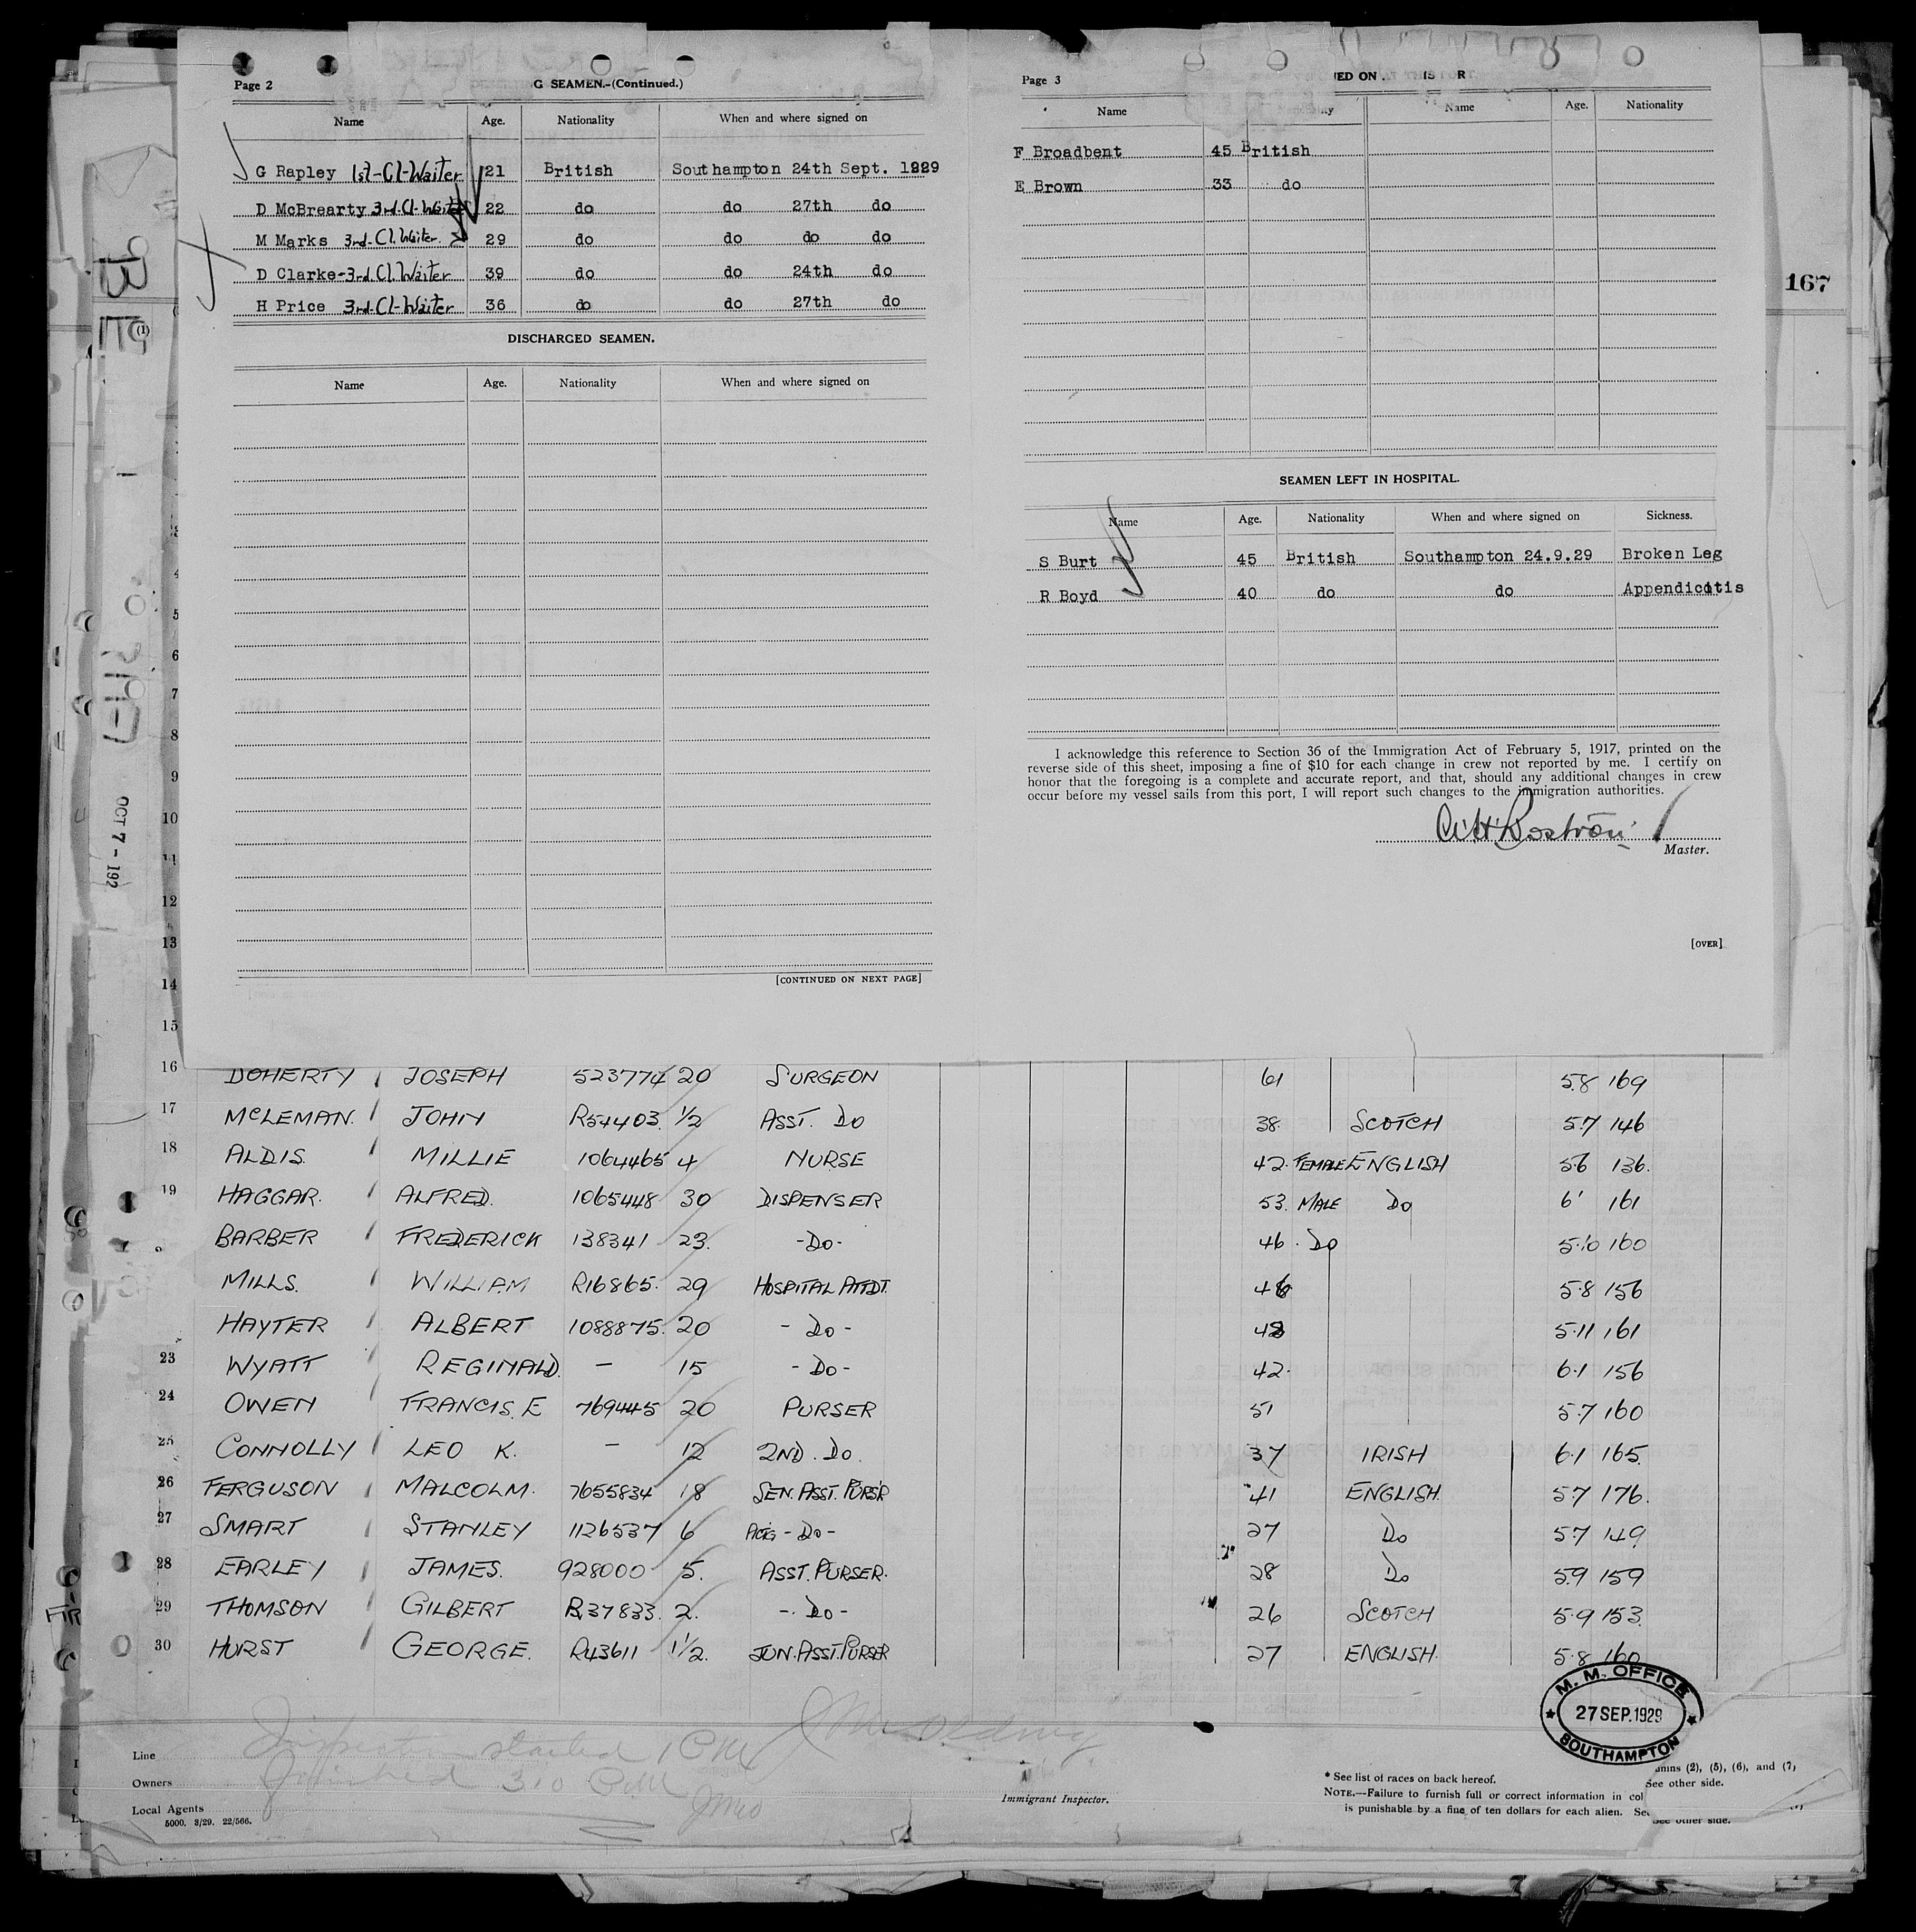 Page 2
G SEAMEN.-(Continued.)
Name Age. Nationality When and where signed on
G Rapley 1st-Cl-Waiter 21 British Southampton 24th Sept. 1929
D McBrearty 3rd.Cl-Waiter 22 do do 27th do
M Marks 3rd-Cl.Waiter. 29 do do do do
D Clarke-3rd.Cl.Waiter 39 do do 24th do
H Price 3rd.Cl-Waiter 36 do do 27th do
DISCHARGED SEAMEN.
Name Age. Nationality When and where signed on
[CONTINUED ON NEXT PAGE]
Page 3
ED ON
Name Name Age. Nationality
F Broadbent 45 British
E Brown 33 do
SEAMEN LEFT IN HOSPITAL.
Name Age. Nationality When and where signed on Sickness.
S Burt 45 British Southampton 24.9.29 Broken Leg
R Boyd 40 do do Appendicitis
I acknowledge this reference to Section 36 of the Immigration Act of February 5, 1917, printed on the
reverse side of this sheet, imposing a fine of $10 for each change in crew not reported by me. I certify on
honor that the foregoing is a complete and accurate report, and that, should any additional changes in crew
occur before my vessel sails from this port, I will report such changes to the immigration authorities.
A.H.Rostron
Master.
[OVER]
167
(1)
OCT 7 - 192
4
5
6
7
8
9
10
11
12
13
14
15
16 DOHERTY JOSEPH 523774 20 SURGEON 61 5.8 169
17 McLEMAN. JOHN R54403. 1/2 ASST. DO 38. SCOTCH 5.7 146
18 ALDIS. MILLIE 1064465 4 NURSE 42. FEMALE ENGLISH 5.6 136.
19 HAGGAR. ALFRED. 1065448 30 DISPENSER 53. MALE DO 6' 161
BARBER FREDERICK 138341 23. -DO- 46. DO 5.10 160
MILLS. WILLIAM R16865. 29 HOSPITAL ATTDT. 46 5.8 156
HAYTER ALBERT 1088875. 20 - DO - 48 5.11 161
23 WYATT REGINALD. — 15 - DO - 42. 6.1 156
24 OWEN FRANCIS. E 769445 20 PURSER 51 5.7 160
25 CONNOLLY LEO K. — 12 2ND. DO. 37 IRISH 6.1 165.
26 FERGUSON MALCOLM. 7655834 18 SEN. ASST. PURSR 41 ENGLISH. 5.7 176.
27 SMART STANLEY 1126537 6 ACTG - DO - 27 DO 5.7 149
28 EARLEY JAMES. 928000 5. ASST. PURSER. 28 DO 5.9 159
29 THOMSON GILBERT R.37833. 2. -. DO - 26 SCOTCH 5.9 153.
30 HURST GEORGE. R43611 1 1/2. JUN. ASST. PURSER 27 ENGLISH. 5.8 160
M. M. OFFICE
27 SEP. 1929
SOUTHAMPTON
Inspection started 1 PM
finished 3:10 P.M.
Line
Owners
Local Agents
5000. 8/29. 22/566.
Immigrant Inspector.
* See list of races on back hereof.
NOTE.—Failure to furnish full or correct information in col
is punishable by a fine of ten dollars for each alien. See
umns (2), (5), (6), and (7)
See other side.
See other side.